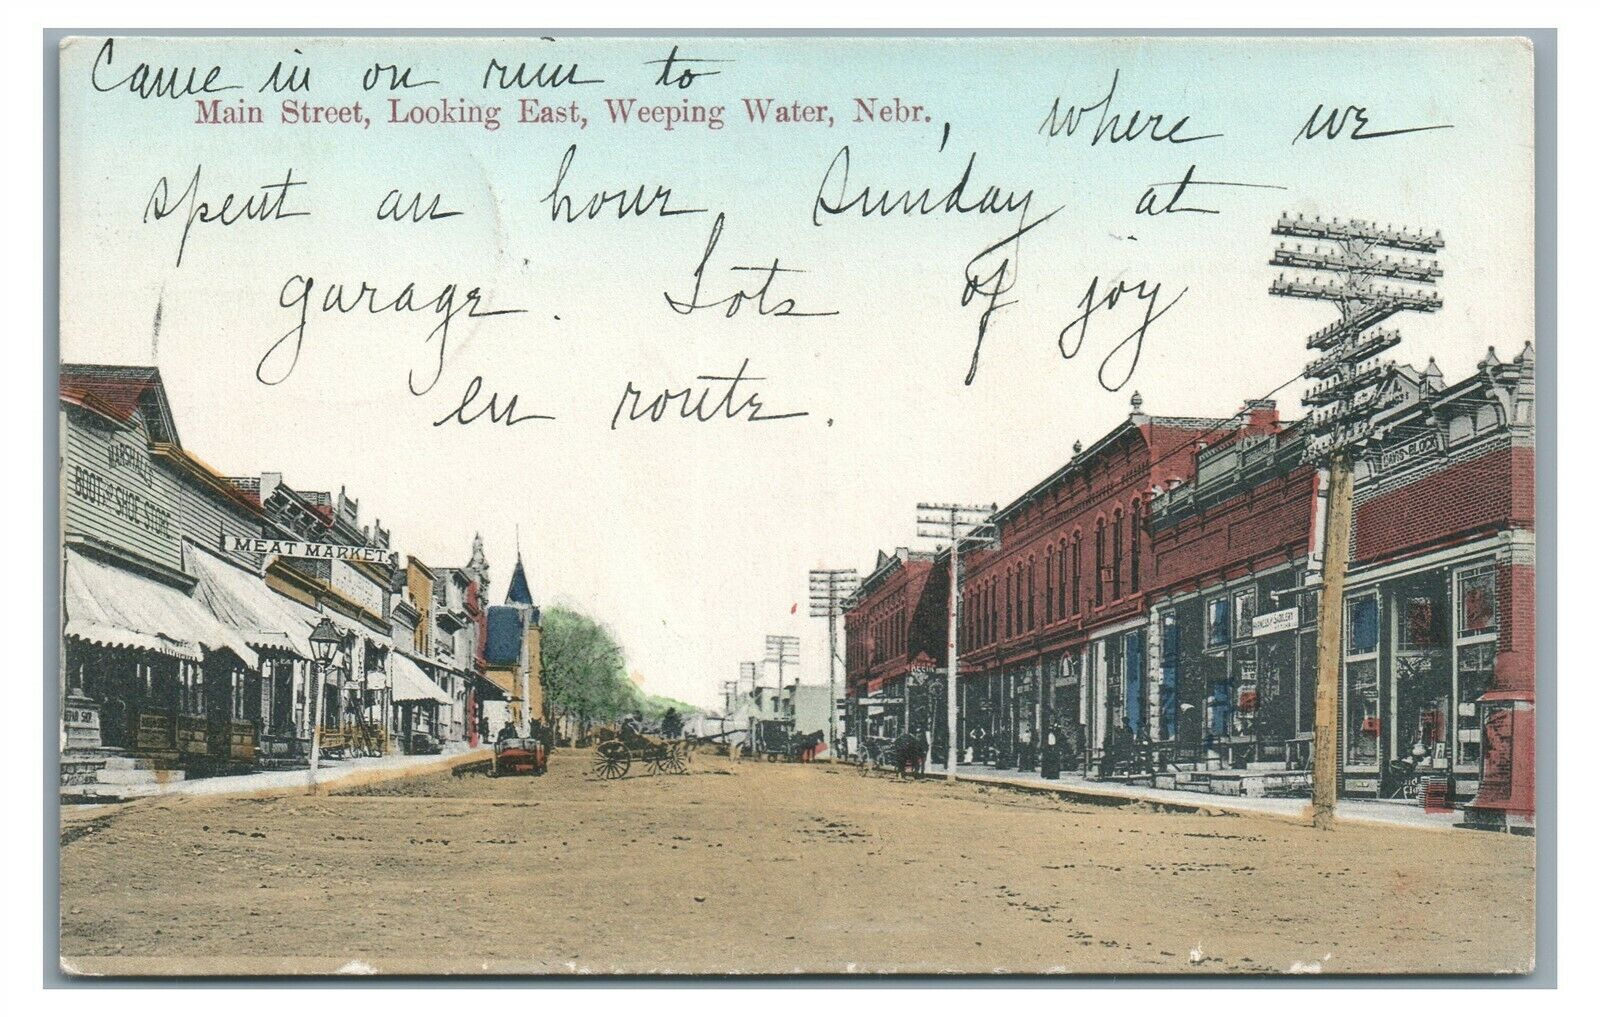 Came in on rim to
Main Street, Looking East, Weeping Water, Nebr.
, where we
spent an hour Sunday at
garage. Lots of joy
en route.
MARSHALL'S
BOOT AND SHOE STORE
MEAT MARKET
DAVIS BLOCK
HARNESS & SADDLERY